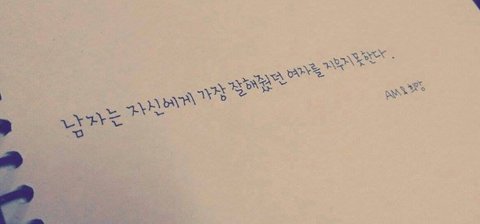 남자는 자신에게 가장 잘해줬던 여자를 지우지못한다.